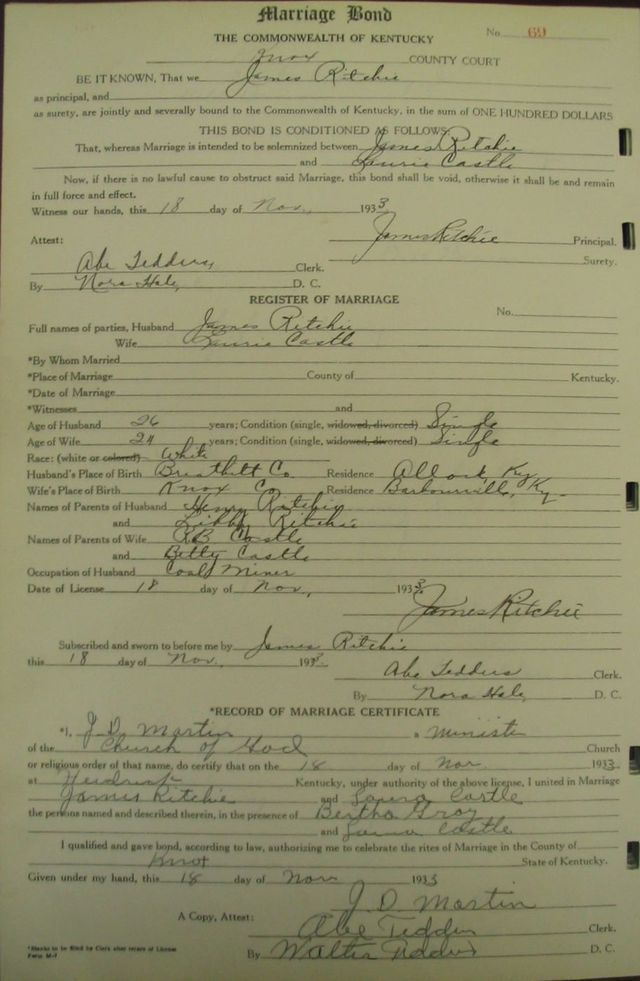 Marriage Bond
No. 69
THE COMMONWEALTH OF KENTUCKY
Knox COUNTY COURT
BE IT KNOWN, That we James Ritchie
as principal, and
as surety, are jointly and severally bound to the Commonwealth of Kentucky, in the sum of ONE HUNDRED DOLLARS
THIS BOND IS CONDITIONED AS FOLLOWS:
That, whereas Marriage is intended to be solemnized between James Ritchie
and Laurie Castle
Now, if there is no lawful cause to obstruct said Marriage, this bond shall be void, otherwise it shall be and remain
in full force and effect.
Witness our hands, this 18 day of Nov, 1933
James Ritchie Principal.
Attest:
Surety.
Abe Tedders Clerk.
By Nora Hale, D. C.
REGISTER OF MARRIAGE
No.
Full names of parties, Husband James Ritchie
Wife Laurie Castle
*By Whom Married
*Place of Marriage County of Kentucky.
*Date of Marriage
*Witnesses and
Age of Husband 26 years; Condition (single, widowed, divorced) Single
Age of Wife 24 years; Condition (single, widowed, divorced) Single
Race: (white or colored) White
Husband's Place of Birth Breathitt Co Residence Allock, Ky
Wife's Place of Birth Knox Co Residence Barbourville, Ky
Names of Parents of Husband Henry Ritchie
and Libby Ritchie
Names of Parents of Wife R.B. Castle
and Betty Castle
Occupation of Husband Coal Miner
Date of License 18 day of Nov, 1933
James Ritchie
Subscribed and sworn to before me by James Ritchie
this 18 day of Nov, 1933.
Abe Tedders Clerk.
By Nora Hale, D. C.
*RECORD OF MARRIAGE CERTIFICATE
*I, J. D. Martin a Ministe
of the Church of God Church
or religious order of that name, do certify that on the 18 day of Nov. 1933
at Heidrick Kentucky, under authority of the above license, I united in Marriage
James Ritchie and Castle
the persons named and described therein, in the presence of Bertha Gray
and Castle
I qualified and gave bond, according to law, authorizing me to celebrate the rites of Marriage in the County of
Knox State of Kentucky.
Given under my hand, this 18 day of Nov 1933
J. D. Martin
A Copy, Attest: Abe Tedders Clerk.
By Walter Tedders D. C.
*Blanks to be filled by Clerk after return of License
Form M-7